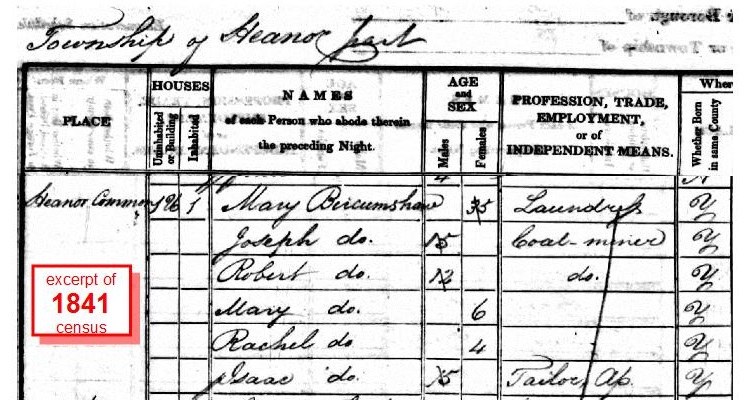 Township of Heanor part
HOUSES
AGE and SEX
Wher
PLACE
Uninhabited or Building
Inhabited
NAMES
of each Person who abode therein
the preceding Night.
Males
Females
PROFESSION, TRADE,
EMPLOYMENT,
or of
INDEPENDENT MEANS.
Whether Born
in same County
Heanor Common 1 Mary Bircumshaw 35 Laundress Y
Joseph do. 15 Coal-miner Y
Robert do. 12 do. Y
Mary do. 6 Y
Rachel do 4 Y
Isaac do. 15 Tailor Ap. Y
excerpt of
1841
census